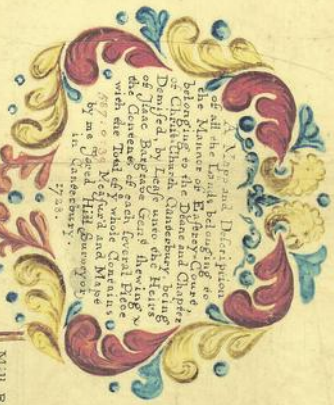 A Map and Description
of all the Lands belonging to
the Mannor of Eastrey-Court
belonging to the Deane and Chapter
of Christ-Church Canterbury being
Demised by Lease unto the Heirs
of Isaac Bargrave Gent shewing
the Contents of each several Piece
with the Total of whole Contents
Measur'd and Mapt
by me Jared Hill Surveyor
in Canterbury.
1728.
Mill